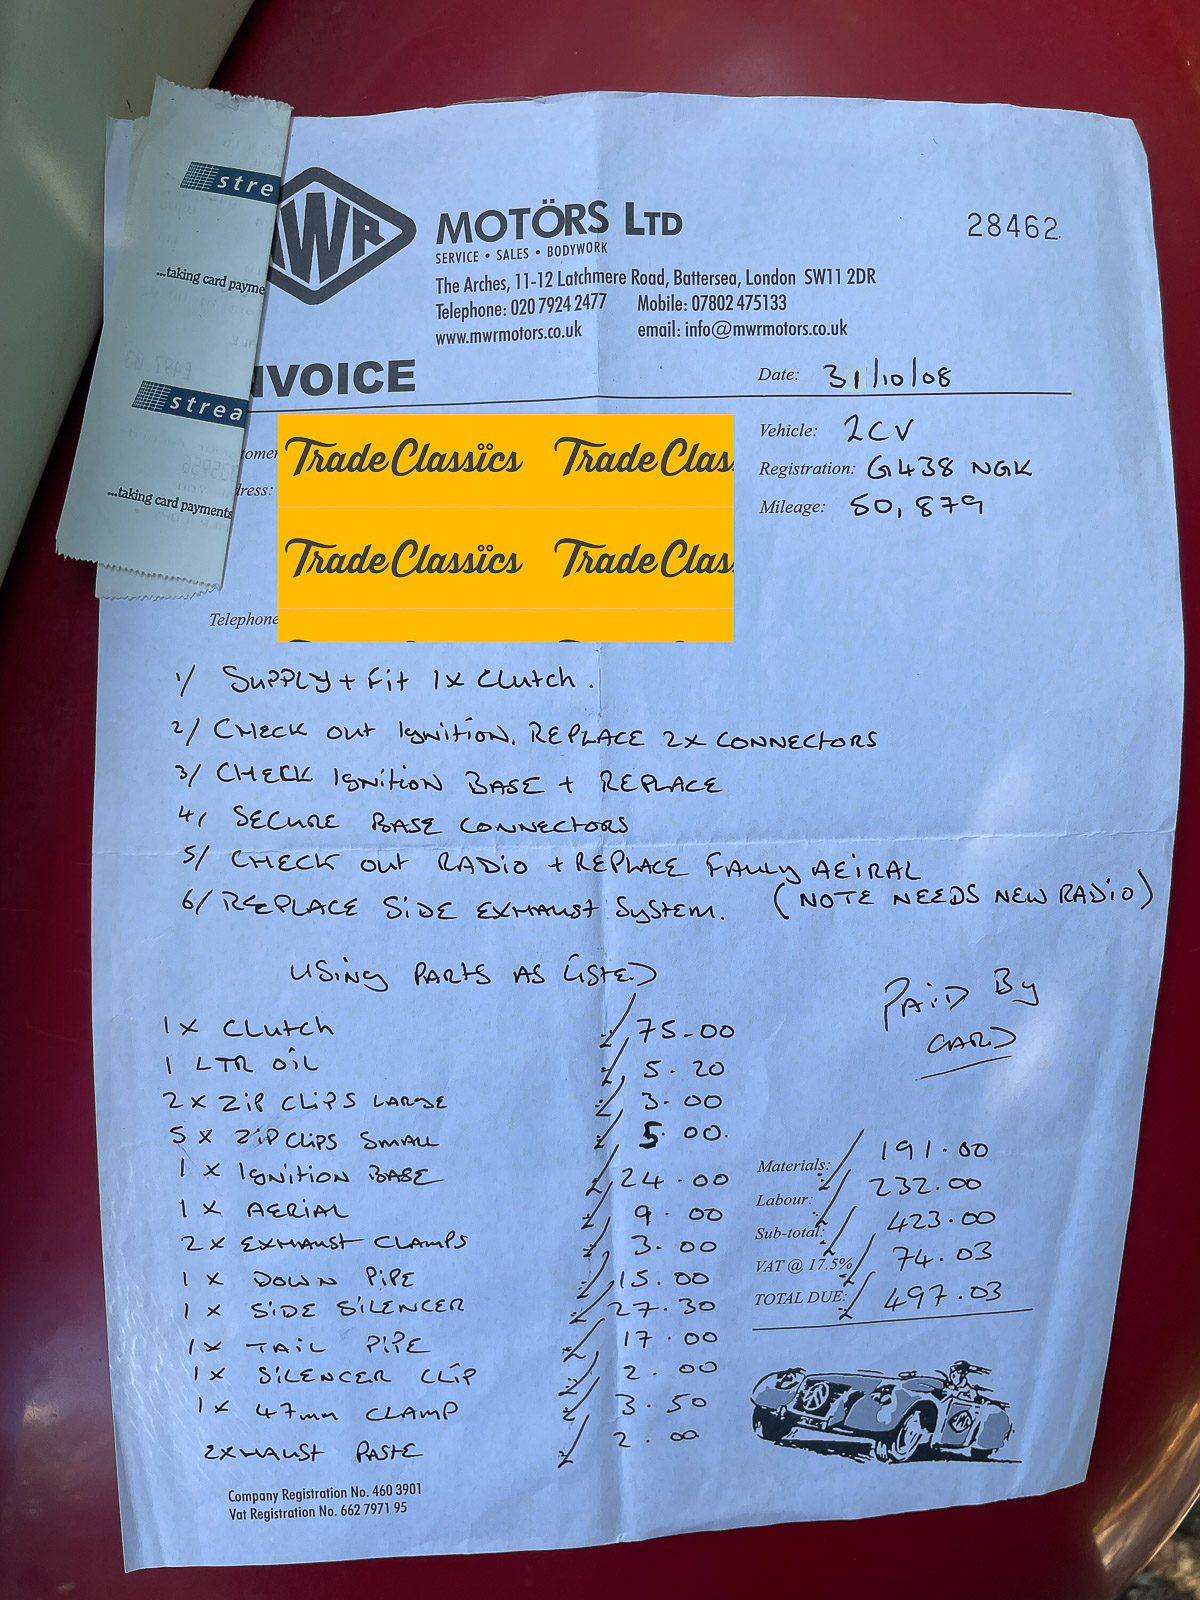 stre
...taking card payme
strea
...taking card payments
WR
MOTÖRS LTD
SERVICE • SALES • BODYWORK
The Arches, 11-12 Latchmere Road, Battersea, London SW11 2DR
Telephone: 020 7924 2477 Mobile: 07802 475133
www.mwrmotors.co.uk email: info@mwrmotors.co.uk
28462
NVOICE
Date: 31/10/08
tomer
dress:
Telephone
Trade Classics Trade Clas
Trade Classics Trade Clas
Vehicle: 2CV
Registration: G438 NGK
Mileage: 50,879
1/ SUPPLY + Fit 1x Clutch.
2/ CHECK out Ignition, REPLACE 2x CONNECTORS
3/ CHECK Ignition BASE + REPLACE
4/ SECURE BASE CONNECTORS
5/ CHECK out RADIO + REPLACE FAULTY AEIRAL
(NOTE NEEDS NEW RADIO)
6/ REPLACE SIDE EXHAUST SYSTEM.
USING PARTS AS LISTED
1 x Clutch £ 75-00
1 LTR OIL £ 5.20
2 x ZIP CLIPS LARGE £ 3-00
5 x ZIP CLIPS SMALL £ 5 00.
1 x Ignition BASE £ 24.00
1 x AERIAL £ 9.00
2x EXHAUST CLAMPS £ 3.00
1 x DOWN PIPE £ 15.00
1 x SIDE SILENCER £ 27.30
1x TAIL PIPE £ 17.00
1x SILENCER CLIP £ 2.00
1x 47mm CLAMP £ 3.50
2XHAUST PASTE £ 2.00
PAID By
CARD
Materials: £ 191.00
Labour: £ 232.00
Sub-total: £ 423.00
VAT @ 17.5% £ 74.03
TOTAL DUE: £ 497.03
Company Registration No. 460 3901
Vat Registration No. 662 7971 95